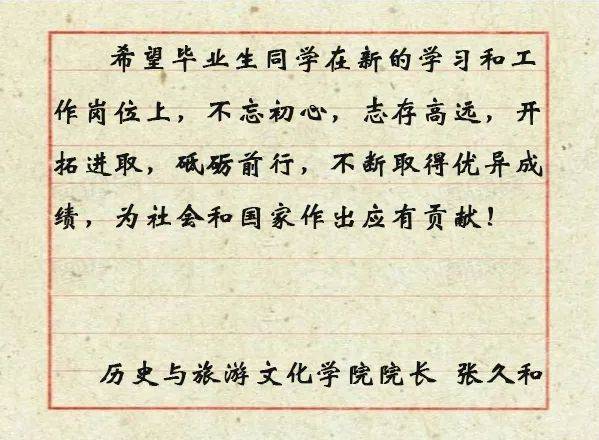 希望毕业生同学在新的学习和工
作岗位上，不忘初心，志存高远，开
拓进取，砥砺前行，不断取得优异成
绩，为社会和国家作出应有贡献！
历史与旅游文化学院院长 张久和